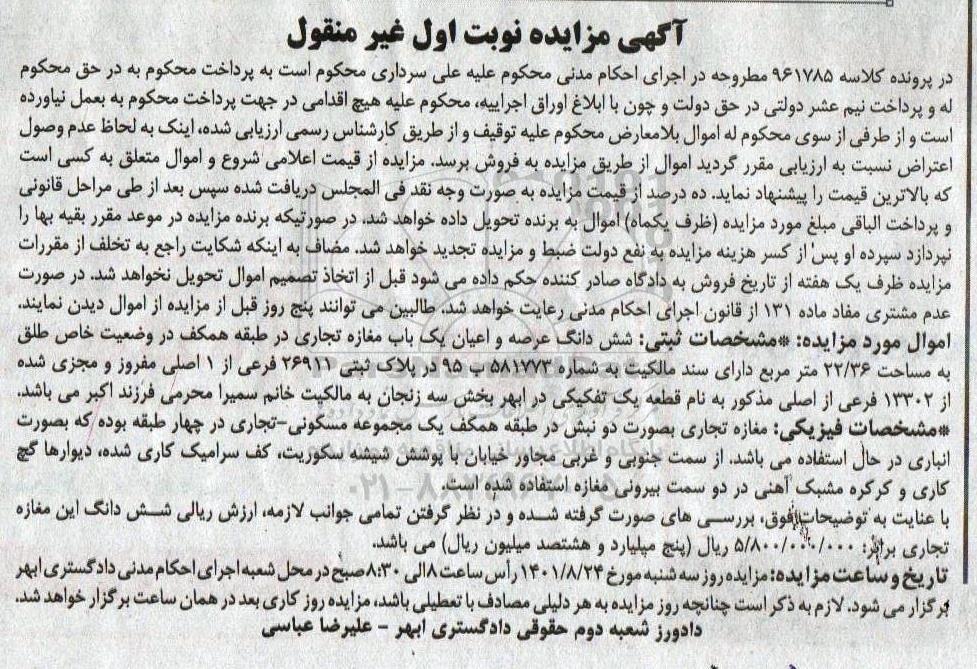 آگهی مزایده نوبت اول غیر منقول
در پرونده کلاسه ۹۶۱۷۸۵ مطروحه در اجرای احکام مدنی محکوم علیه علی سرداری محکوم است به پرداخت محکوم به در حق محکوم
له و پرداخت نیم عشر دولتی در حق دولت و چون با ابلاغ اوراق اجراییه، محکوم علیه هیچ اقدامی در جهت پرداخت محکوم به بعمل نیاورده
است و از طرفی از سوی محکوم له اموال بلامعارض محکوم علیه توقیف و از طریق کارشناس رسمی ارزیابی شده، اینک به لحاظ عدم وصول
اعتراض نسبت به ارزیابی مقرر گردید اموال از طریق مزایده به فروش برسد. مزایده از قیمت اعلامی شروع و اموال متعلق به کسی است
که بالاترین قیمت را پیشنهاد نماید. ده درصد از قیمت مزایده به صورت وجه نقد فی المجلس دریافت شده سپس بعد از طی مراحل قانونی
و پرداخت الباقی مبلغ مورد مزایده (ظرف یکماه) اموال به برنده تحویل داده خواهد شد. در صورتیکه برنده مزایده در موعد مقرر بقیه بها را
نپردازد سپرده او پس از کسر هزینه مزایده به نفع دولت ضبط و مزایده تجدید خواهد شد. مضاف به اینکه شکایت راجع به تخلف از مقررات
مزایده ظرف یک هفته از تاریخ فروش به دادگاه صادر کننده حکم داده می شود قبل از اتخاذ تصمیم اموال تحویل نخواهد شد. در صورت
عدم مشتری مفاد ماده ۱۳۱ از قانون اجرای احکام مدنی رعایت خواهد شد. طالبین می توانند پنج روز قبل از مزایده از اموال دیدن نمایند.
اموال مورد مزایده: *مشخصات ثبتی: شش دانگ عرصه و اعیان یک باب مغازه تجاری در طبقه همکف در وضعیت خاص طلق
به مساحت ۲۲/۳۶ متر مربع دارای سند مالکیت به شماره ۵۸۱۷۷۳ ب ۹۵ در پلاک ثبتی ۲۶۹۱۱ فرعی از ۱ اصلی مفروز و مجزی شده
از ۱۳۳۰۲ فرعی از اصلی مذکور به نام قطعه یک تفکیکی در ابهر بخش سه زنجان به مالکیت خانم سمیرا محرمی فرزند اکبر می باشد.
*مشخصات فیزیکی: مغازه تجاری بصورت دو نبش در طبقه همکف یک مجموعه مسکونی-تجاری در چهار طبقه بوده که بصورت
انباری در حال استفاده می باشد. از سمت جنوبی و غربی مجاور خیابان با پوشش شیشه سکوریت، کف سرامیک کاری شده، دیوارها گچ
کاری و کرکره مشبک آهنی در دو سمت بیرونی مغازه استفاده شده است.
با عنایت به توضیحات فوق، بررسی های صورت گرفته شده و در نظر گرفتن تمامی جوانب لازمه، ارزش ریالی شش دانگ این مغازه
تجاری برابر: ۵/۸۰۰/۰۰۰/۰۰۰ ریال (پنج میلیارد و هشتصد میلیون ریال) می باشد.
تاریخ و ساعت مزایده: مزایده روز سه شنبه مورخ ۱۴۰۱/۸/۲۴ رأس ساعت ۸ الی ۸:۳۰ صبح در محل شعبه اجرای احکام مدنی دادگستری ابهر
برگزار می شود. لازم به ذکر است چنانچه روز مزایده به هر دلیلی مصادف با تعطیلی باشد، مزایده روز کاری بعد در همان ساعت برگزار خواهد شد.
دادورز شعبه دوم حقوقی دادگستری ابهر - علیرضا عباسی